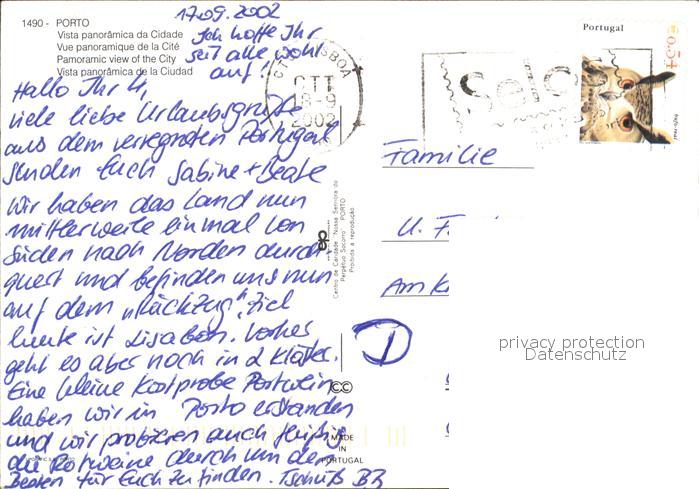 17.09.2002
Ich hoffe Ihr
seit alle wohl
auf!
1490 - PORTO
Vista panorâmica da Cidade
Vue panoramique de la Cité
Pamoramic view of the City
Vista panorâmica de la Ciudad
Hallo Ihr 4,
viele liebe Urlaubsgrüße
aus dem verregneten Portugal
senden Euch Sabine + Beate
Wir haben das Land nun
mittlerweile einmal von
Süden nach Norden durch-
quert und befinden uns nun
auf dem "Rückzug", Ziel
heute ist Lissabon. Vorher
geht es aber noch in 2 Klöster.
Eine kleine Kostprobe Portwein
haben wir in Porto erstanden
und wir probieren auch fleißig
die Rotweine durch um den
Besten für Euch zu finden. Tschüß
CTT
18-9
2002
LISBOA
Portugal
€0,54
Familie
U. F
Am K
D
Centro de Caridade "Nossa Senhora do
Perpétuo Socorro" PORTO
Proibida a reprodução
MADE
IN
PORTUGAL
privacy protection
Datenschutz